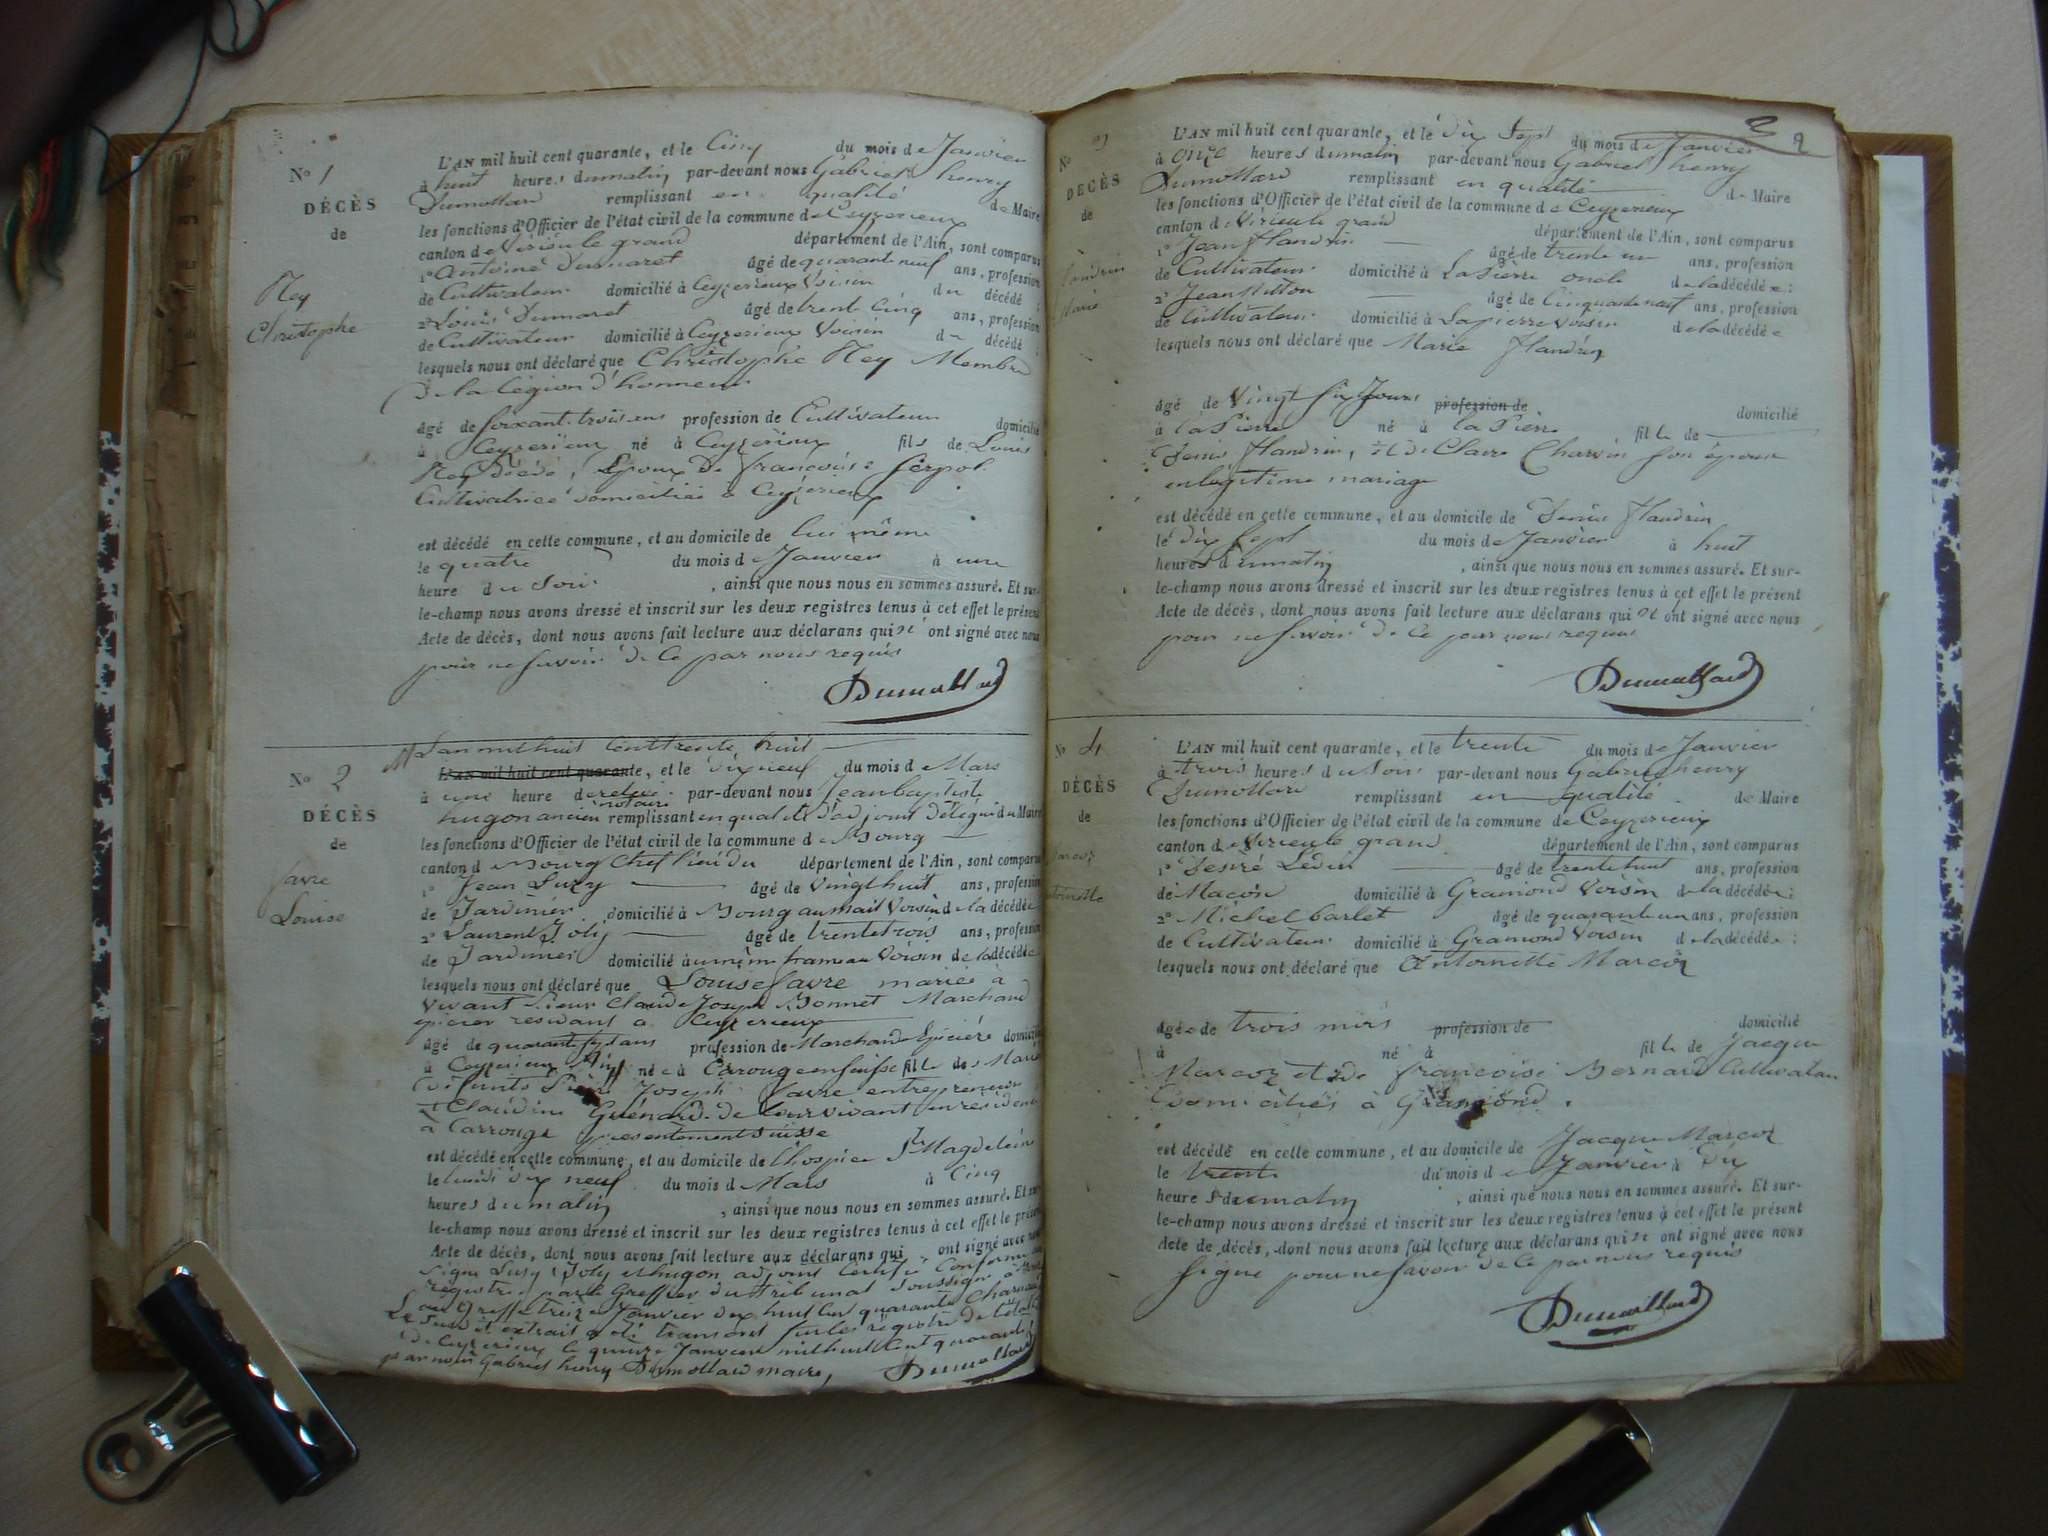 No 1
DÉCÈS
de
Rey
Christophe
L'AN mil huit cent quarante, et le Cinq du mois de Janvier
à huit heures du matin par-devant nous Gabriel henry
Dumollard remplissant en qualité de Maire
les fonctions d'Officier de l'état civil de la commune de Ceyzerieux
canton de Virieu le grand département de l'Ain, sont comparus
1o Antoine Dumaret âgé de quarante neuf ans, profession
de Cultivateur domicilié à Ceyzerieux Voisin du décédé ;
2o Louis Dumaret âgé de trente Cinq ans, profession
de Cultivateur domicilié à Ceyzerieux Voisin du décédé
lesquels nous ont déclaré que Christophe Rey Membre
de la légion d'honneur
âgé de soixant trois ans profession de Cultivateur domicilié
à Ceyzerieux né à Ceyzerieux fils de Louis
Rey décédé, Epoux de françoise serpol
Cultivatrice domiciliée à Ceyzerieux
est décédé en cette commune, et au domicile de lui même
le quatre du mois de Janvier à une
heure du Soir , ainsi que nous nous en sommes assuré. Et sur-
le-champ nous avons dressé et inscrit sur les deux registres tenus à cet effet le présent
Acte de décès, dont nous avons fait lecture aux déclarans qui n' ont signé avec nous
pour ne savoir de ce par nous requis
Dumollard
No 2
DÉCÈS
de
favre
Louise
L'an mil huit Cent trente huit
L'AN mil huit cent quarante, et le dix neuf du mois de Mars
à une heure de relevé par-devant nous Jean baptiste
hugon ancien notaire remplissant en qualité d'adjoint délégué du Maire
les fonctions d'Officier de l'état civil de la commune de Bourg
canton de Bourg Chef lieu du département de l'Ain, sont comparus
1o Jean Suzy âgé de Vingt huit ans, profession
de Jardinier domicilié à Bourg au mail Voisin de la décédée
2o Laurent Joly âgé de trente trois ans, profession
de Jardinier domicilié à Voisin de la décédée
lesquels nous ont déclaré que Louise favre mariée à
Vivant Sieur Claude Joseph Bonnet Marchand
épicier residant à Ceyzerieux
âgé de quarante sept ans profession de Marchande Epicière domicilié
à Ceyzerieux Ain née à Carrouge en suisse fille des Mariés
défunts Joseph favre entrepreneur
et Claudine Guénard de leur vivant en résidence
à Carrouge presentement suisse
est décédé en cette commune, et au domicile de l'hospice Ste Magdeleine
le lundi dix neuf du mois de Mars à Cinq
heures du matin , ainsi que nous nous en sommes assuré. Et sur-
le-champ nous avons dressé et inscrit sur les deux registres tenus à cet effet le présent
Acte de décès, dont nous avons fait lecture aux déclarans qui ont signé avec nous
Signé Suzy, Joly et hugon adjoint Certifié Conforme au
registre par le Greffier du tribunal soussigné à
au Greffe treize Janvier dix huit Cent quarante
Le Susdit extrait a été transcrit sur les registre de l'état
de Ceyzerieux le quinze Janvier mil huit Cent quarante
par nous Gabriel henry Dumollard maire, Dumollard
2
No 3
DÉCÈS
de
flandrin
Marie
L'AN mil huit cent quarante, et le dix Sept du mois de Janvier
à onze heures du matin par-devant nous Gabriel henry
Dumollard remplissant en qualité de Maire
les fonctions d'Officier de l'état civil de la commune de Ceyzerieux
canton de Virieu le grand département de l'Ain, sont comparus
1o Jean flandrin âgé de trente un ans, profession
de Cultivateur domicilié à La Pierre oncle de la décédée :
2o Jean âgé de Cinquante neuf ans, profession
de Cultivateur domicilié à Lapierre Voisin de la décédée
lesquels nous ont déclaré que Marie flandrin
âgé de Vingt six Jours profession de domicilié
à la Pierre né à la Pierre fille de
Denis flandrin, et de Claire Charvin son épouse
en légitime mariage
est décédé en cette commune, et au domicile de Denis flandrin
le dix sept du mois de Janvier à huit
heures du matin , ainsi que nous nous en sommes assuré. Et sur-
le-champ nous avons dressé et inscrit sur les deux registres tenus à cet effet le présent
Acte de décès, dont nous avons fait lecture aux déclarans qui n' ont signé avec nous
pour ne savoir de ce par nous requis
Dumollard
No 4
DÉCÈS
de
Marcoz
Antoinette
L'AN mil huit cent quarante, et le trente du mois de Janvier
à trois heures du soir par-devant nous Gabriel henry
Dumollard remplissant en qualité de Maire
les fonctions d'Officier de l'état civil de la commune de Ceyzerieux
canton de Virieu le grand département de l'Ain, sont comparus
1o Desiré Ledin âgé de trente huit ans, profession
de Macon domicilié à Gramond Voisin de la décédée :
2o Michel barlet âgé de quarante un ans, profession
de Cultivateur domicilié à Gramond Voisin de la décédée :
lesquels nous ont déclaré que Antoinette Marcoz
âgée de trois mois profession de domicilié
à né à fille de Jacque
Marcoz et de françoise Bernard Cultivateur
domiciliés à Gramond.
est décédé en cette commune, et au domicile de Jacque Marcoz
le trente du mois de Janvier à dix
heures du matin , ainsi que nous nous en sommes assuré. Et sur-
le-champ nous avons dressé et inscrit sur les deux registres tenus à cet effet le présent
Acte de décès, dont nous avons fait lecture aux déclarans qui n' ont signé avec nous
signé pour ne savoir de ce par nous requis
Dumollard